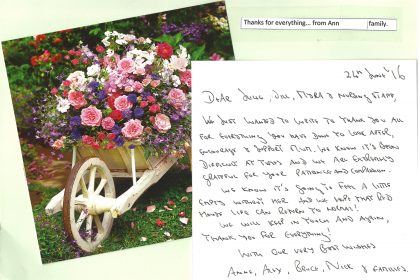 Thanks for everything... from Ann family.
24th June '16
Dear Jill, & Nursing Staff,
We just wanted to write to thank you all
for everything you have done to look after,
encourage & support Mum. We know it's been
difficult at times and we are extremely
grateful for your patience and compassion.
We know it's going to feel a little
empty without her and we hope that
life can return to normal!
We will keep in touch and again,
thank you for everything!
With our very best wishes
Ally, Bruce, Nick & families